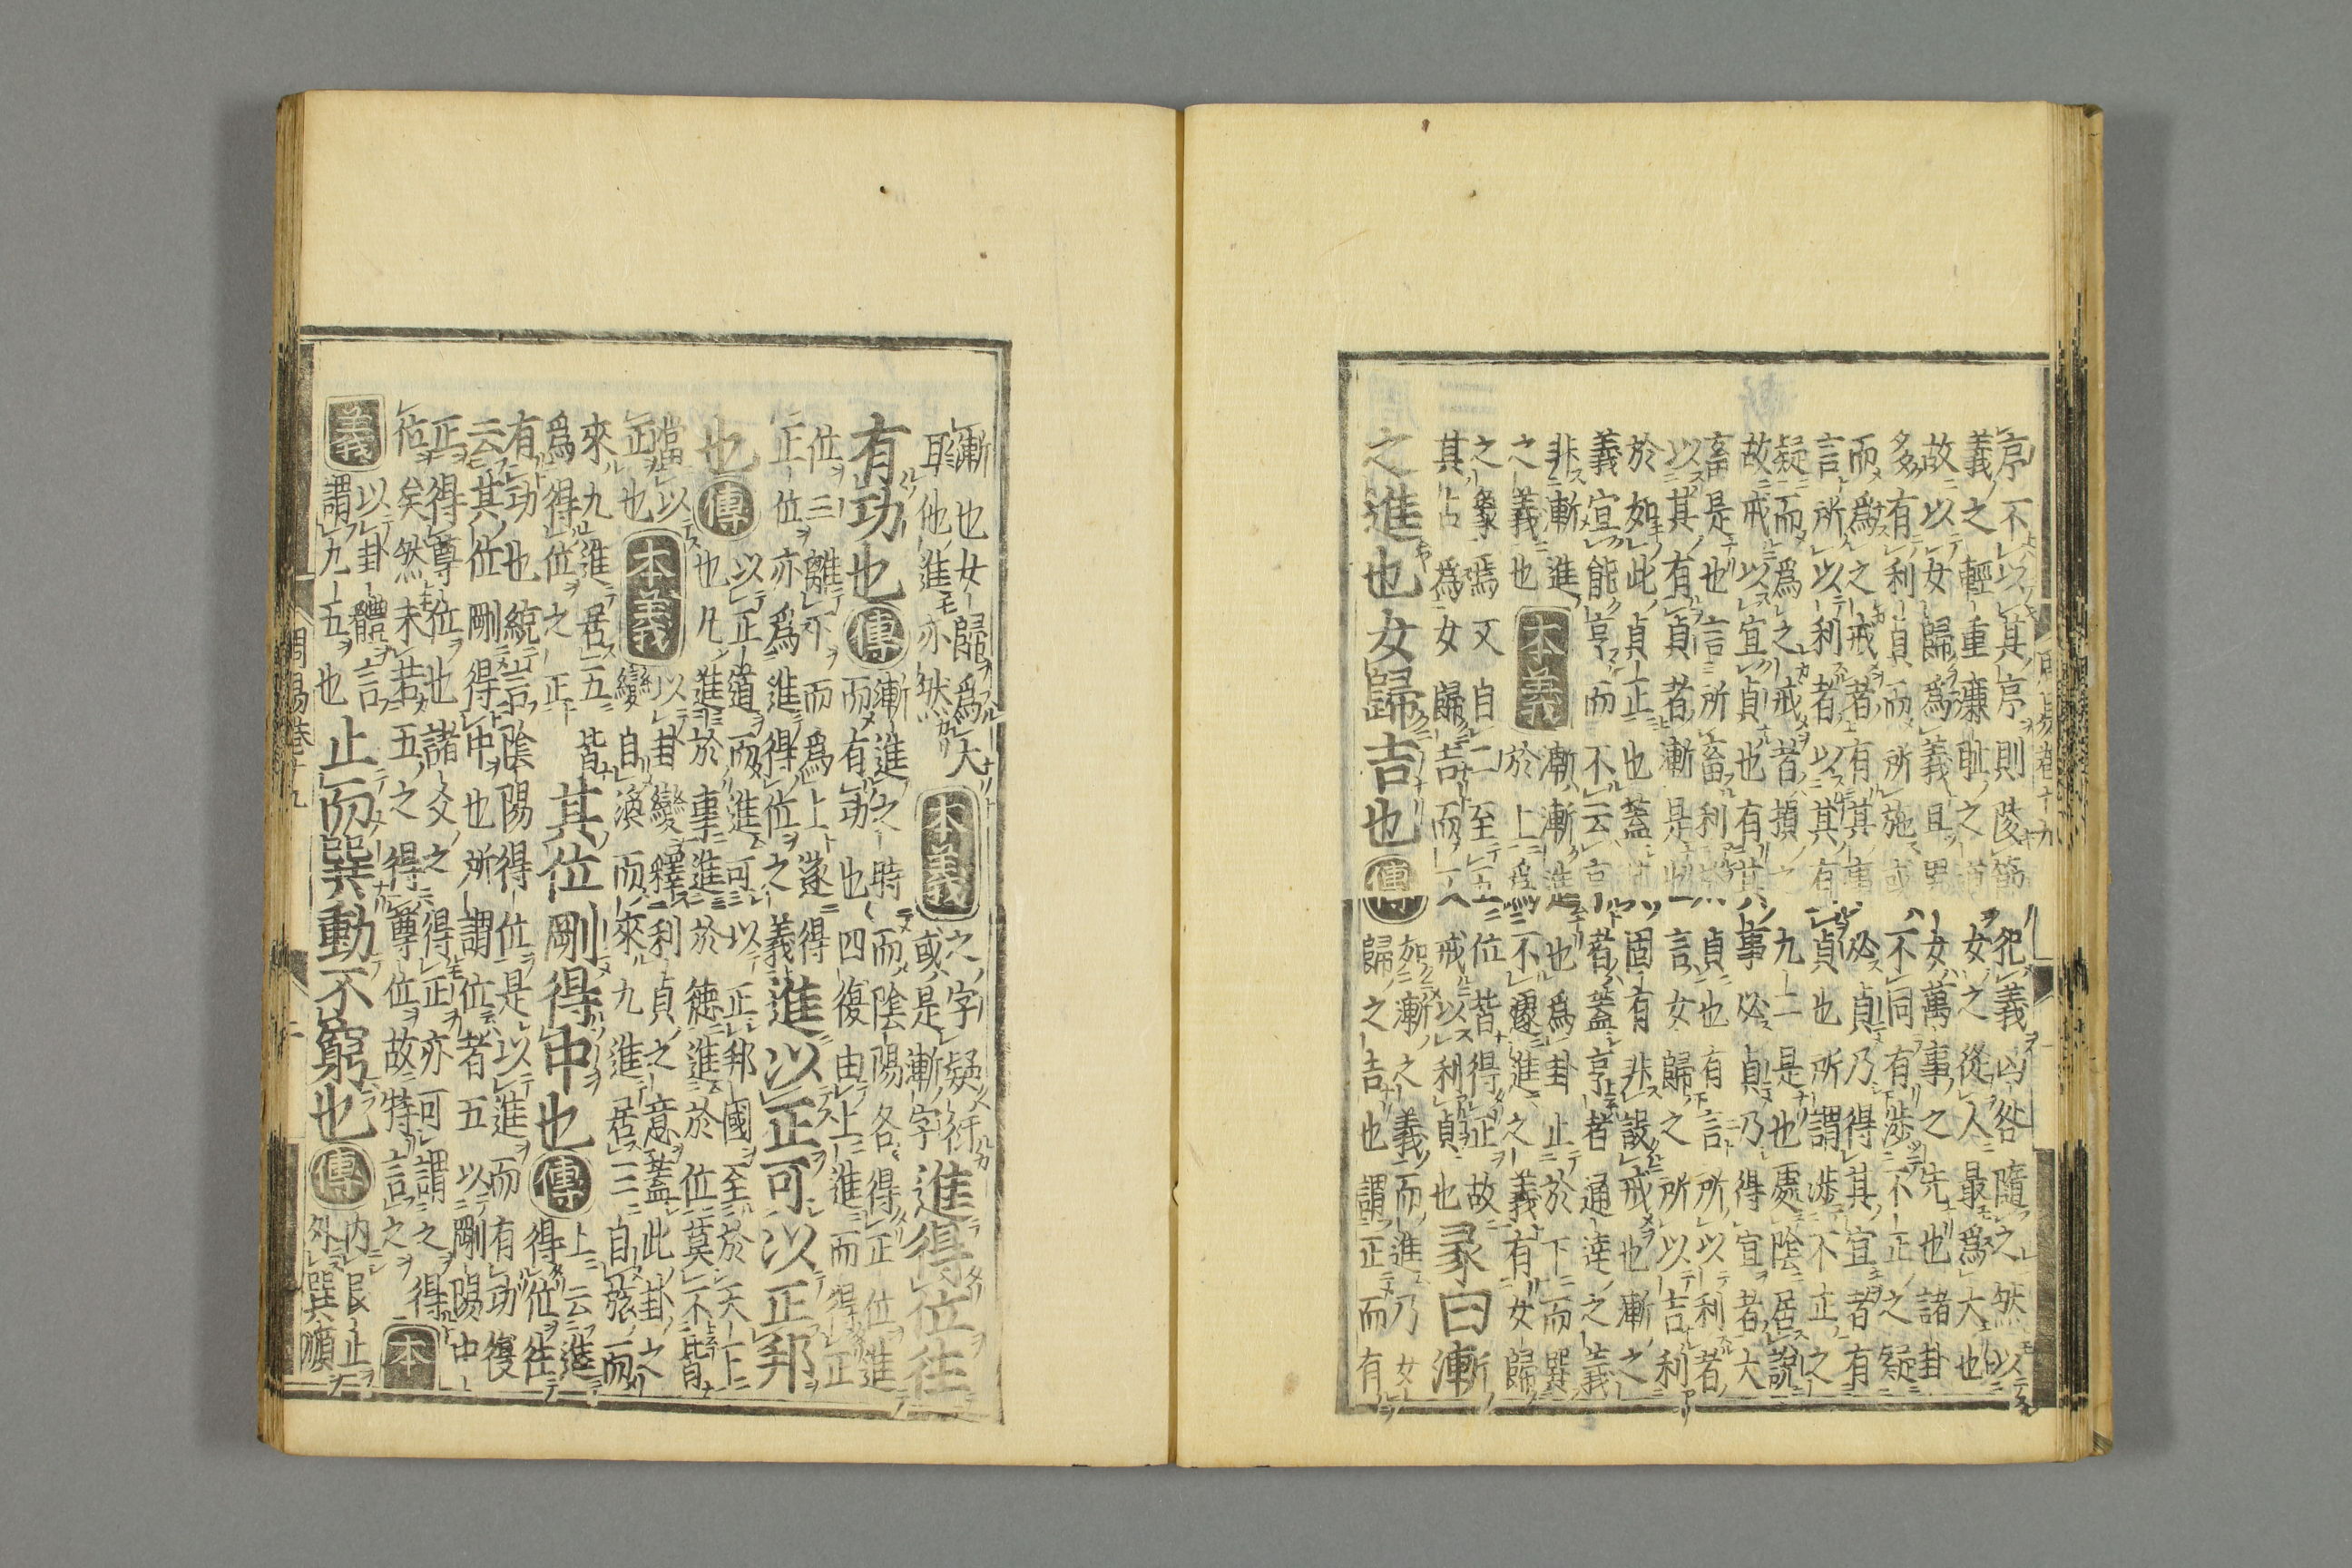 序不以其序則陵節犯義凶咎隨之然以
義之輕重廉恥之道女之從人最爲大也
故以女歸爲義且男女萬事之先也諸卦
多有利貞而所施或不同有涉不正之疑
而爲之戒者有其事必貞乃得其宜者有
言所以利者以其有貞也所謂涉不正之
疑而爲之戒者損之九二是也處陰居說
故戒以宜貞也有其事必貞乃得宜者大
畜是也言所畜利於貞也有言所以利者
以其有貞者漸是也言女歸之所以吉利
於如此貞正也蓋其固有非設戒也漸之
義宜能亨而不云亨者蓋亨者通達之義
非漸進
之義也
本義
漸漸進也爲卦止於下而巽
於上爲不遽進之義有女歸
之象焉又自二至五位皆得正故
其占爲女歸吉而又戒以利貞也
彖曰漸
之進也女歸吉也
傳
如漸之義而進乃女
歸之吉也謂正而有
周易卷十九
漸也女歸爲大
耳他進亦然
本義
之字疑衍
或是漸字
進得位往
有功也
傳
漸進之時而陰陽各得正位進
而有功也四復由上進而得正
位三離下而爲上遂得
正位亦爲進得位之義
進以正可以正邦
也
傳
以正道而進可以正邦國至於天下
也凡進於事進於德進於位莫不皆
當以
正也
本義
以卦變釋利貞之意蓋此卦之
變自渙而來九進居三自旅而
來九進居五皆
爲得位之正
其位剛得中也
傳
上云進
得位往
有功也統言陰陽得位是以進而有功復
云其位剛得中也所謂位者五以剛陽中
正得尊位也諸爻之得正亦可謂之得
位矣然未若五之得尊位故特言之
本
義
以卦體言
謂九五也
止而巽動不窮也
傳
內艮止
外巽順
周易卷十九